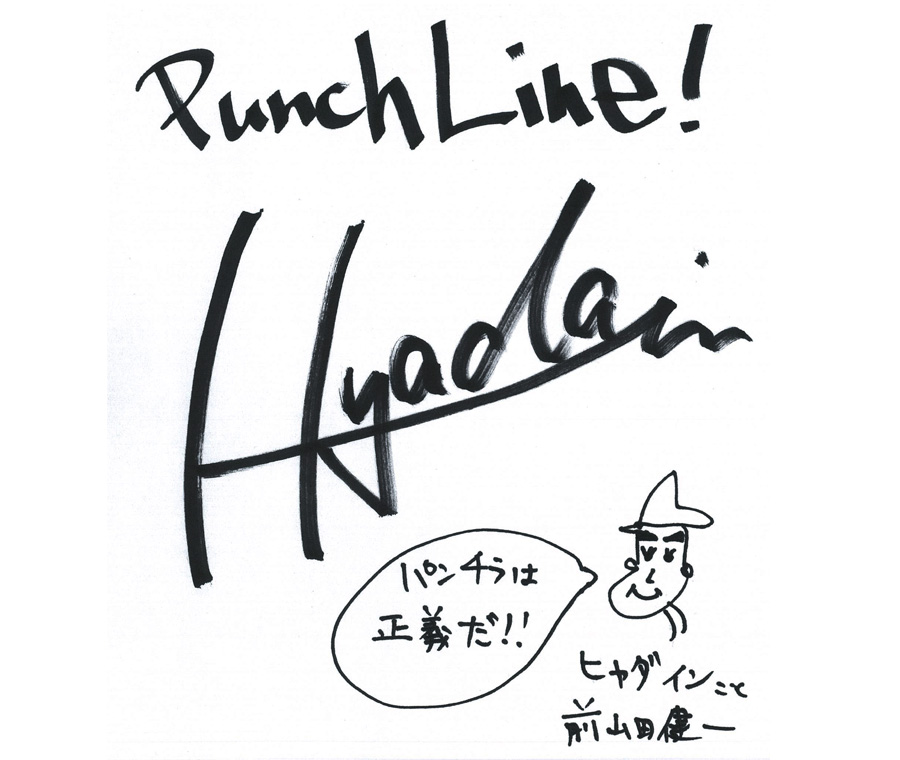 Punch Line!
Hyadain
パンチラは
正義だ!!
ヒャダインこと
前山田健一